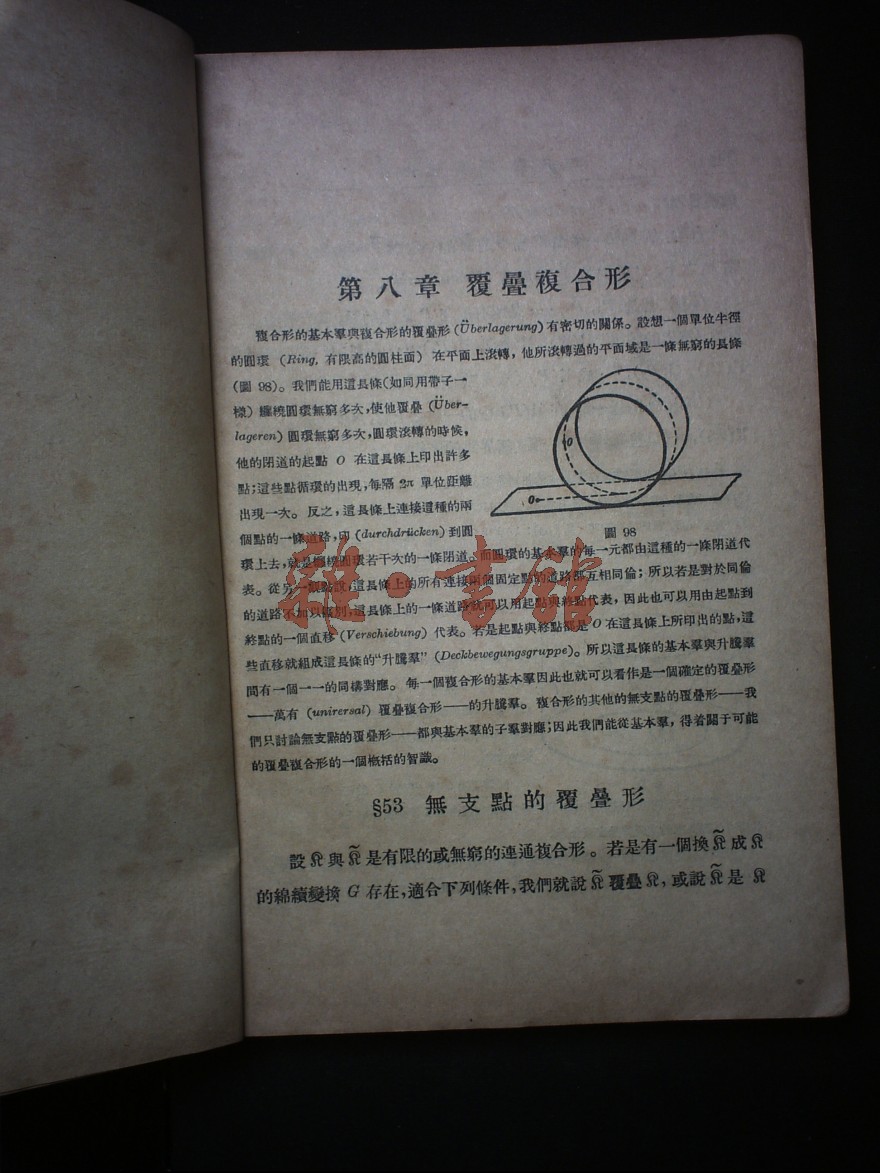 第八章 覆疊複合形
複合形的基本羣與複合形的覆疊形 (Überlagerung) 有密切的關係。設想一個單位半徑
的圓環 (Ring, 有限高的圓柱面) 在平面上滾轉，他所滾轉過的平面域是一條無窮的長條
(圖 98)。我們能用這長條(如同用帶子一
樣) 纏繞圓環無窮多次，使他覆疊 (Über-
lageren) 圓環無窮多次，圓環滾轉的時候，
他的閉道的起點 O 在這長條上印出許多
點；這些點循環的出現，每隔 2π 單位距離
出現一次。反之，這長條上連接這種的兩
個點的一條道路，印 (durchdrücken) 到圓
O
O
圖 98
環上去，就是纏繞圓環若干次的一條閉道。而圓環的基本羣的每一元都由這種的一條閉道代
表。從另一觀點說，這長條上的所有連接兩個固定點的道路都互相同倫；所以若是對於同倫
的道路不加以區別，這長條上的一條道路就可以用起點與終點代表，因此也可以用由起點到
終點的一個直移 (Verschiebung) 代表。若是起點與終點都是 O 在這長條上所印出的點，這
些直移就組成這長條的“升騰羣” (Deckbewegungsgruppe)。所以這長條的基本羣與升騰羣
間有一個一一的同構對應。每一個複合形的基本羣因此也就可以看作是一個確定的覆疊形
——萬有 (unirersal) 覆疊複合形——的升騰羣。複合形的其他的無支點的覆疊形——我
們只討論無支點的覆疊形——都與基本羣的子羣對應；因此我們能從基本羣，得着關于可能
的覆疊複合形的一個概括的智識。
§53 無支點的覆疊形
設 𝔎 與 𝔎̃ 是有限的或無窮的連通複合形。若是有一個換 𝔎̃ 成 𝔎
的綿續變換 G 存在，適合下列條件，我們就說 𝔎̃ 覆疊 𝔎，或說 𝔎̃ 是 𝔎
雜·書館